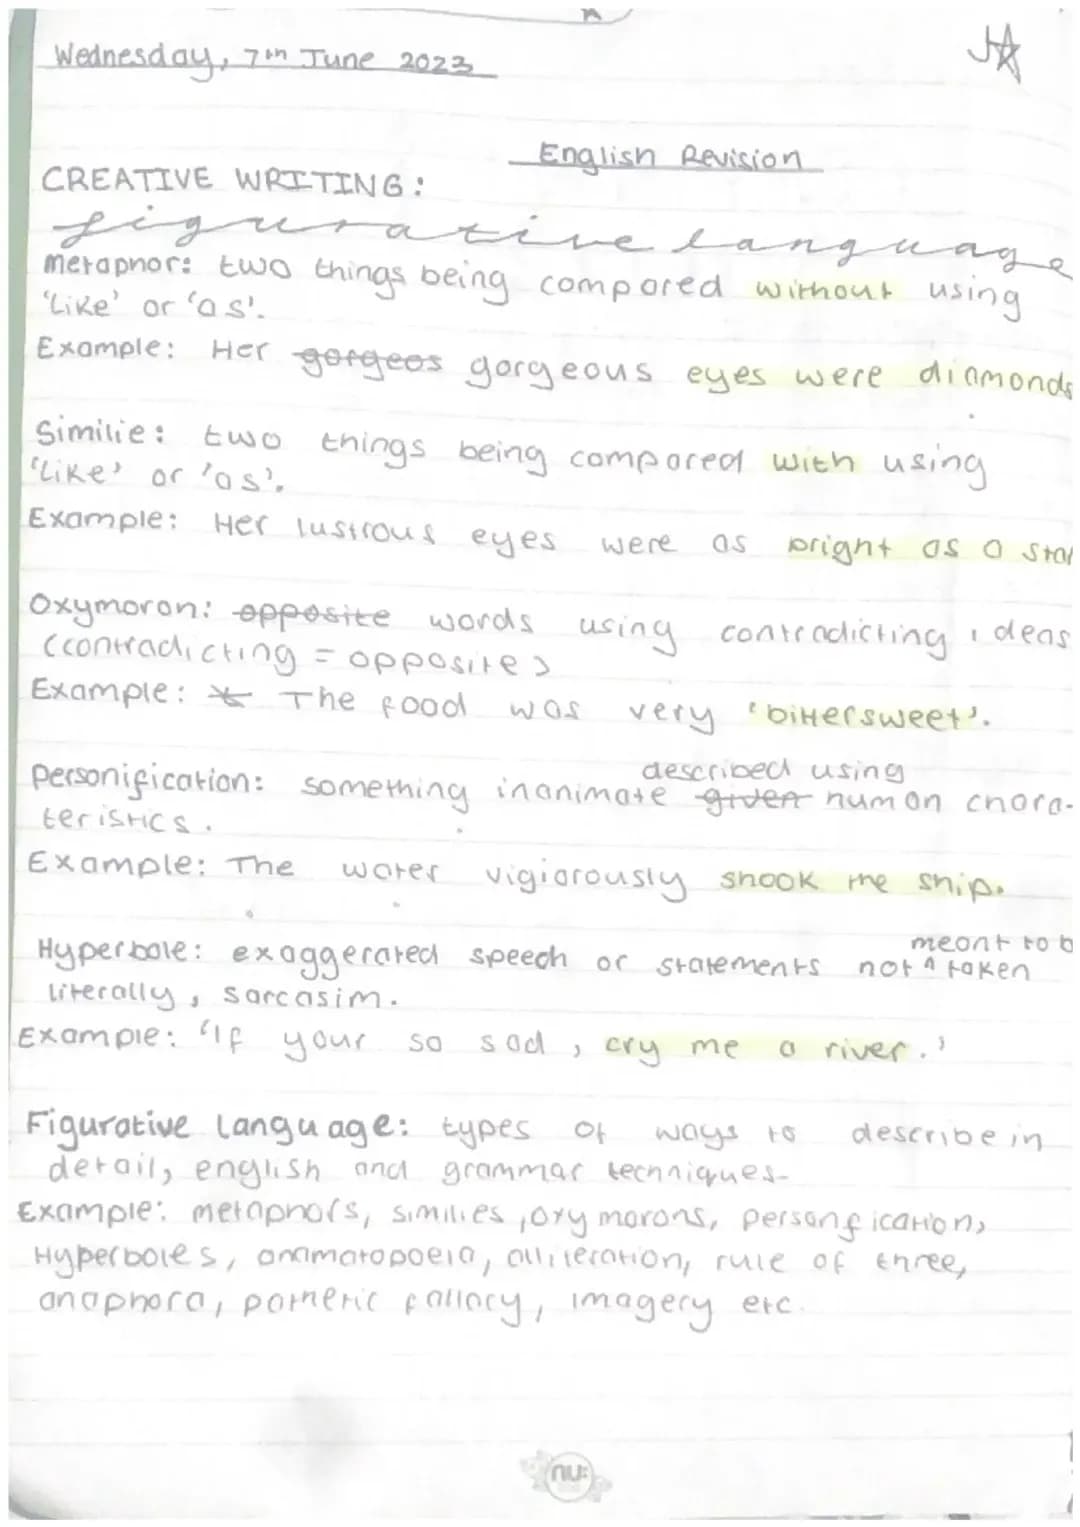 Wednesday, 7th June 2023
English Revision
CREATIVE WRITING:
figurative language
metaphor: two things being compared without using
'Like' or 'as'.
Example: Her gorgeos gorgeous eyes were diamonds
Similie: two things being compared with using
'Like' or 'as'.
Example: Her lustrous eyes were as bright as a star
Oxymoron: opposite words using contradicting ideas
(contradicting = opposite)
Example: The food was very 'bittersweet'.
described using
personification: something inanimate given human chara-
teristics.
Example: The water vigiorously shook the ship.
meant to b
Hyperbole: exaggerated speech or statements not ^ taken
literally, sarcasim.
Example: "If your so sad, cry me a river.'
Figurative language: types of ways to describe in
detail, english and grammar techniques-
Example: metaphors, similies, oxymorons, personfication,
Hyperboles, onmatopoeia, alliteration, rule of three,
anaphora, pathetic fallacy, imagery etc.
nu: